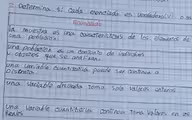 2. Determina si cada enunciado es verdadero o
Enunciado
La muestra es una característica de los elementos de
una población
Una población es un conjunto de individuos
u objetos que se analizan
una variable cuantitativa puede ser continua o
discreta
una variable discreta toma solo valores enteros
una variable cuantitativa continua toma valores en los
reales